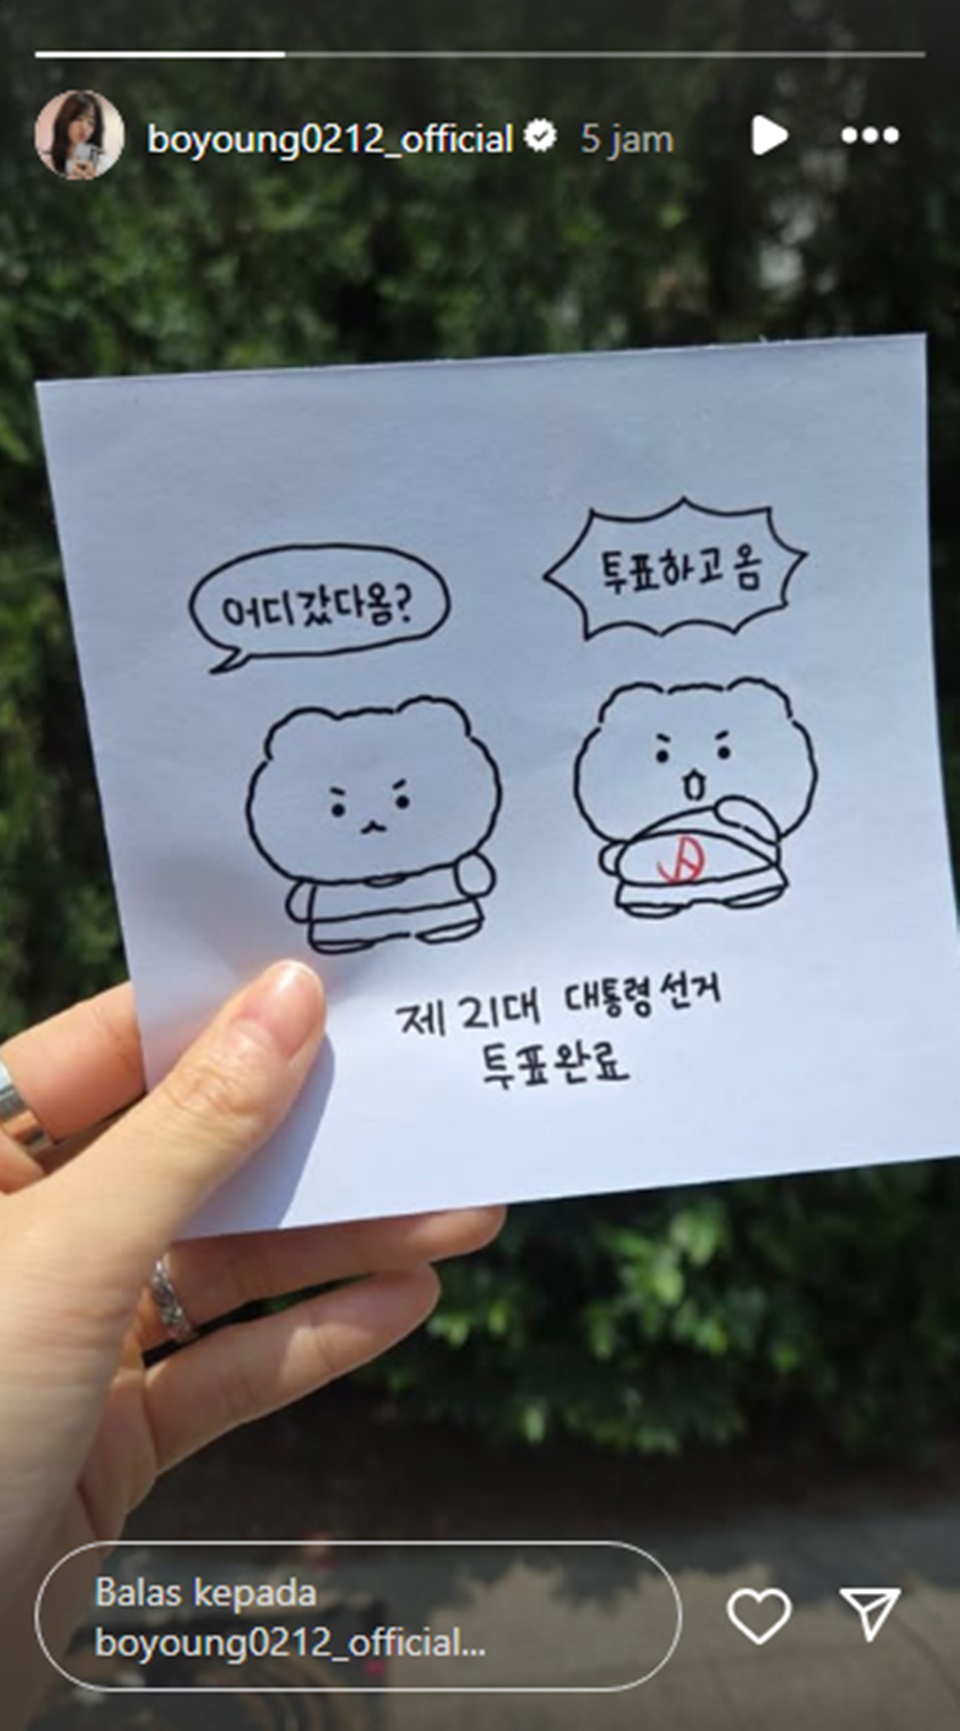 boyoung0212_official 5 jam
어디갔다옴?
투표하고 옴
제 21대 대통령 선거
투표완료
Balas kepada
boyoung0212_official...